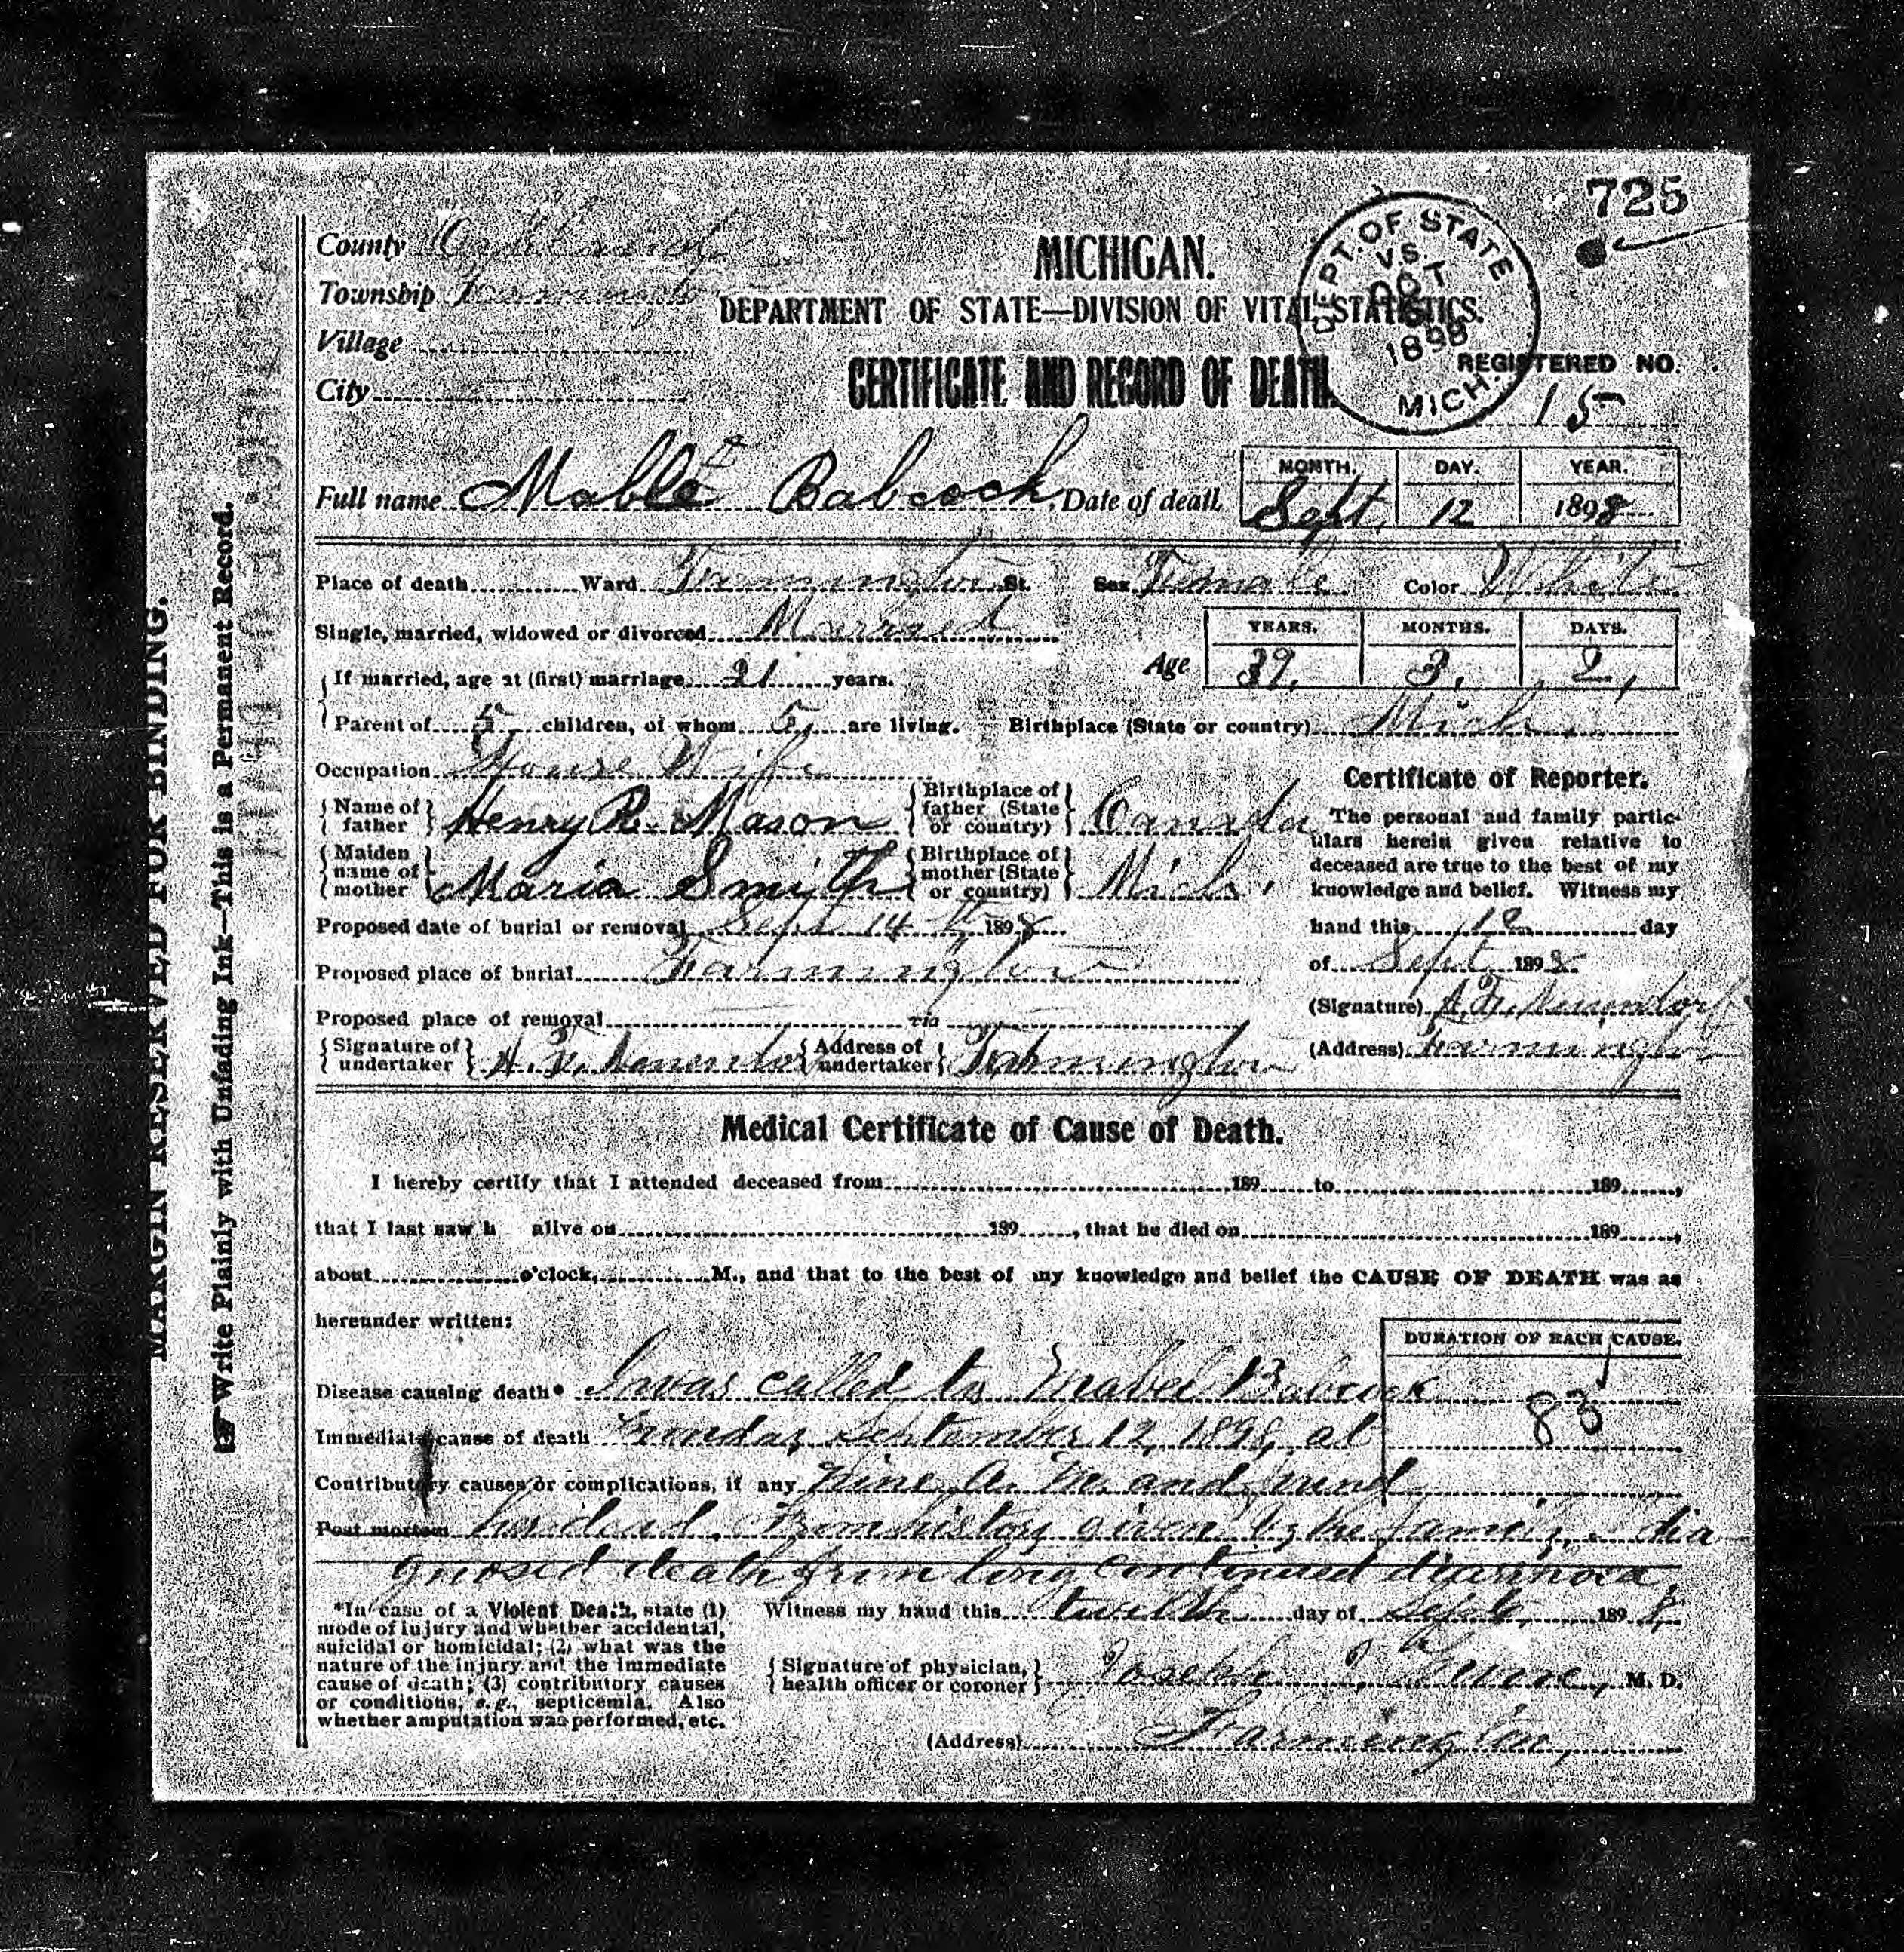 725
County Oakland
MICHIGAN.
DEPT. OF STATE
V.S.
OCT
1898
MICH.
Township Farmington
DEPARTMENT OF STATE—DIVISION OF VITAL STATISTICS.
Village
CERTIFICATE AND RECORD OF DEATH.
REGISTERED NO.
City
15
Full name Mable Babcock, Date of death
MONTH. DAY. YEAR.
Sept. 12 1898
Place of death Ward Farmington St. Sex Female Color White
Single, married, widowed or divorced Married
YEARS. MONTHS. DAYS.
Age 39, 3, 2,
If married, age at (first) marriage 21 years.
Parent of 5 children, of whom 5, are living. Birthplace (State or country) Mich.
Occupation House Wife
Name of father Henry R. Mason Birthplace of father (State or country) Canada
Maiden name of mother Maria Smith Birthplace of mother (State or country) Mich.
Proposed date of burial or removal Sept 14th 1898
Proposed place of burial Farmington
Proposed place of removal via
Signature of undertaker A. F. Address of undertaker Farmington
Certificate of Reporter.
The personal and family partic-
ulars herein given relative to
deceased are true to the best of my
knowledge and belief. Witness my
hand this 12 day
of Sept 1898
(Signature) A. F.
(Address) Farmington
Medical Certificate of Cause of Death.
I hereby certify that I attended deceased from 189 to 189 ,
that I last saw h alive on 189 , that he died on 189 ,
about o'clock, M., and that to the best of my knowledge and belief the CAUSE OF DEATH was as
hereunder written:
DURATION OF EACH CAUSE.
Disease causing death* I was called to Mabel Babcock
83
Immediate cause of death Monday September 12, 1898, at
Contributory causes or complications, if any nine A. M. and found
Post mortem her dead. From history given by the family, I dia
gnosed death from long continued diarrhoea
*In case of a Violent Death, state (1)
mode of injury and whether accidental,
suicidal or homicidal; (2) what was the
nature of the injury and the immediate
cause of death; (3) contributory causes
or conditions, e.g., septicemia. Also
whether amputation was performed, etc.
Witness my hand this twelfth day of Sept, 1898,
Signature of physician, health officer or coroner Joseph M. D.
(Address) Farmington,
MARGIN RESERVED FOR BINDING.
Write Plainly with Unfading Ink—This is a Permanent Record.